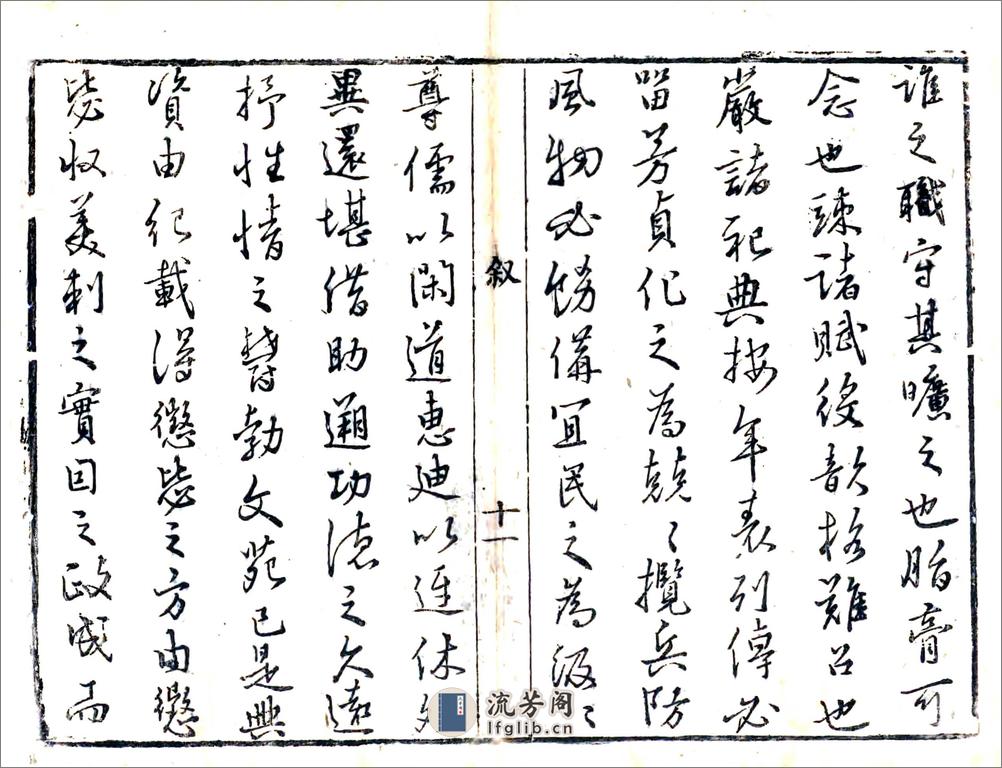 誰之職守其曠之也脂膏可
念也疎諸賦役款格難召也
嚴諸祀典按年表列傳必
留芳貞化之為兢〻攬兵防
風物必備宜民之為汲〻
叙
十一
尊儒以閑道惠迪以迓休
異還堪借助遡功德之久遠
抒性情之欝勃文苑已是興
資由紀載得懲毖之方由懲
毖收美刺之實因之政成而
流芳阁
lfglib.cn